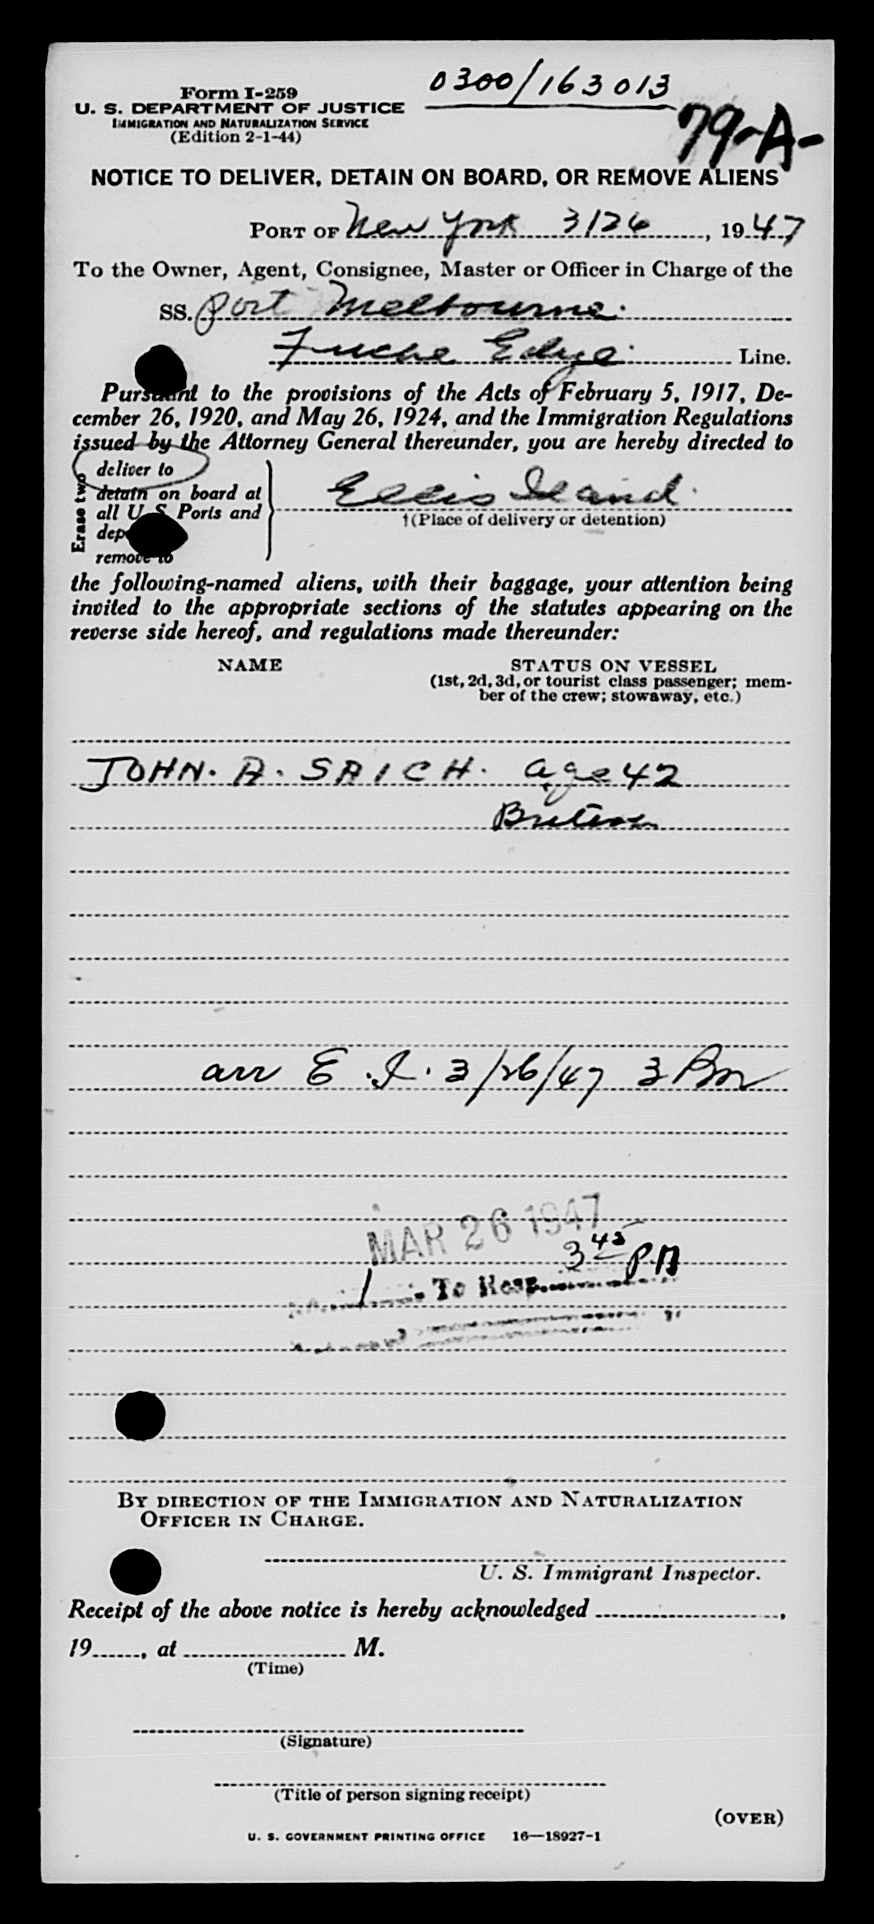 0300/163 013
Form I-259
U. S. DEPARTMENT OF JUSTICE
IMMIGRATION AND NATURALIZATION SERVICE
(Edition 2-1-44)
79-A-
NOTICE TO DELIVER, DETAIN ON BOARD, OR REMOVE ALIENS
PORT OF New York 3/26, 1947
To the Owner, Agent, Consignee, Master or Officer in Charge of the
SS. Port Melbourne.
Funche Edye. Line.
Pursuant to the provisions of the Acts of February 5, 1917, De-
cember 26, 1920, and May 26, 1924, and the Immigration Regulations
issued by the Attorney General thereunder, you are hereby directed to
Erase two
deliver to
detain on board at
all U. S. Ports and
remove to
Ellis Island.
†(Place of delivery or detention)
the following-named aliens, with their baggage, your attention being
invited to the appropriate sections of the statutes appearing on the
reverse side hereof, and regulations made thereunder:
NAME STATUS ON VESSEL
(1st, 2d, 3d, or tourist class passenger; mem-
ber of the crew; stowaway, etc.)
JOHN. A. SAICH. age 42
British
arr E.I. 3/26/47 3 Pm
MAR 26 1947
3 45 P.M
1 To Hosp.
BY DIRECTION OF THE IMMIGRATION AND NATURALIZATION
OFFICER IN CHARGE.
U. S. Immigrant Inspector.
Receipt of the above notice is hereby acknowledged ,
19 , at M.
(Time)
(Signature)
(Title of person signing receipt)
(OVER)
U. S. GOVERNMENT PRINTING OFFICE 16—18927-1